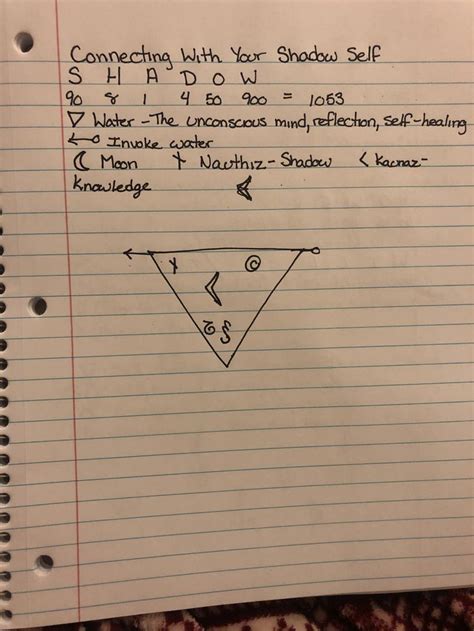 Connecting With Your Shadow Self
S H A D O W
90 8 1 4 50 900 = 1053
▽ Water - The unconscious mind, reflection, self-healing
Invoke water
☾ Moon Nauthiz - Shadow < Kaunaz -
Knowledge